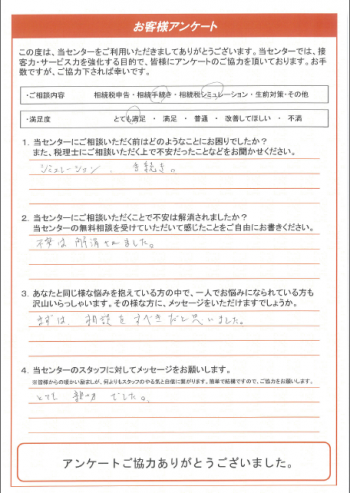 お客様アンケート
この度は、当センターをご利用いただきましてありがとうございます。当センターでは、接
客力・サービス力を強化する目的で、皆様にアンケートのご協力を頂いております。お手
数ですが、ご協力下されば幸いです。
・ご相談内容　相続税申告・相続手続き・相続税シミュレーション・生前対策・その他
・満足度　とても満足 ・ 満足 ・ 普通 ・ 改善してほしい ・ 不満
1. 当センターにご相談いただく前はどのようなことにお困りでしたか？
また、税理士にご相談いただく上で不安だったことなどをお聞かせください。
シミュレーション、手続き。
2. 当センターにご相談いただくことで不安は解消されましたか？
当センターの無料相談を受けていただいて感じたことをご自由にお書きください。
不安は解消されました。
3. あなたと同じ様な悩みを抱えている方の中で、一人でお悩みになられている方も
沢山いらっしゃいます。その様な方に、メッセージをいただけますでしょうか。
まずは、相談をすべきだと思いました。
4. 当センターのスタッフに対してメッセージをお願いします。
※皆様からの暖かい励ましが、何よりもスタッフのやる気と自信に繋がります。簡単で結構ですので、ご協力をお願いします。
とても親切でした。
アンケートご協力ありがとうございました。